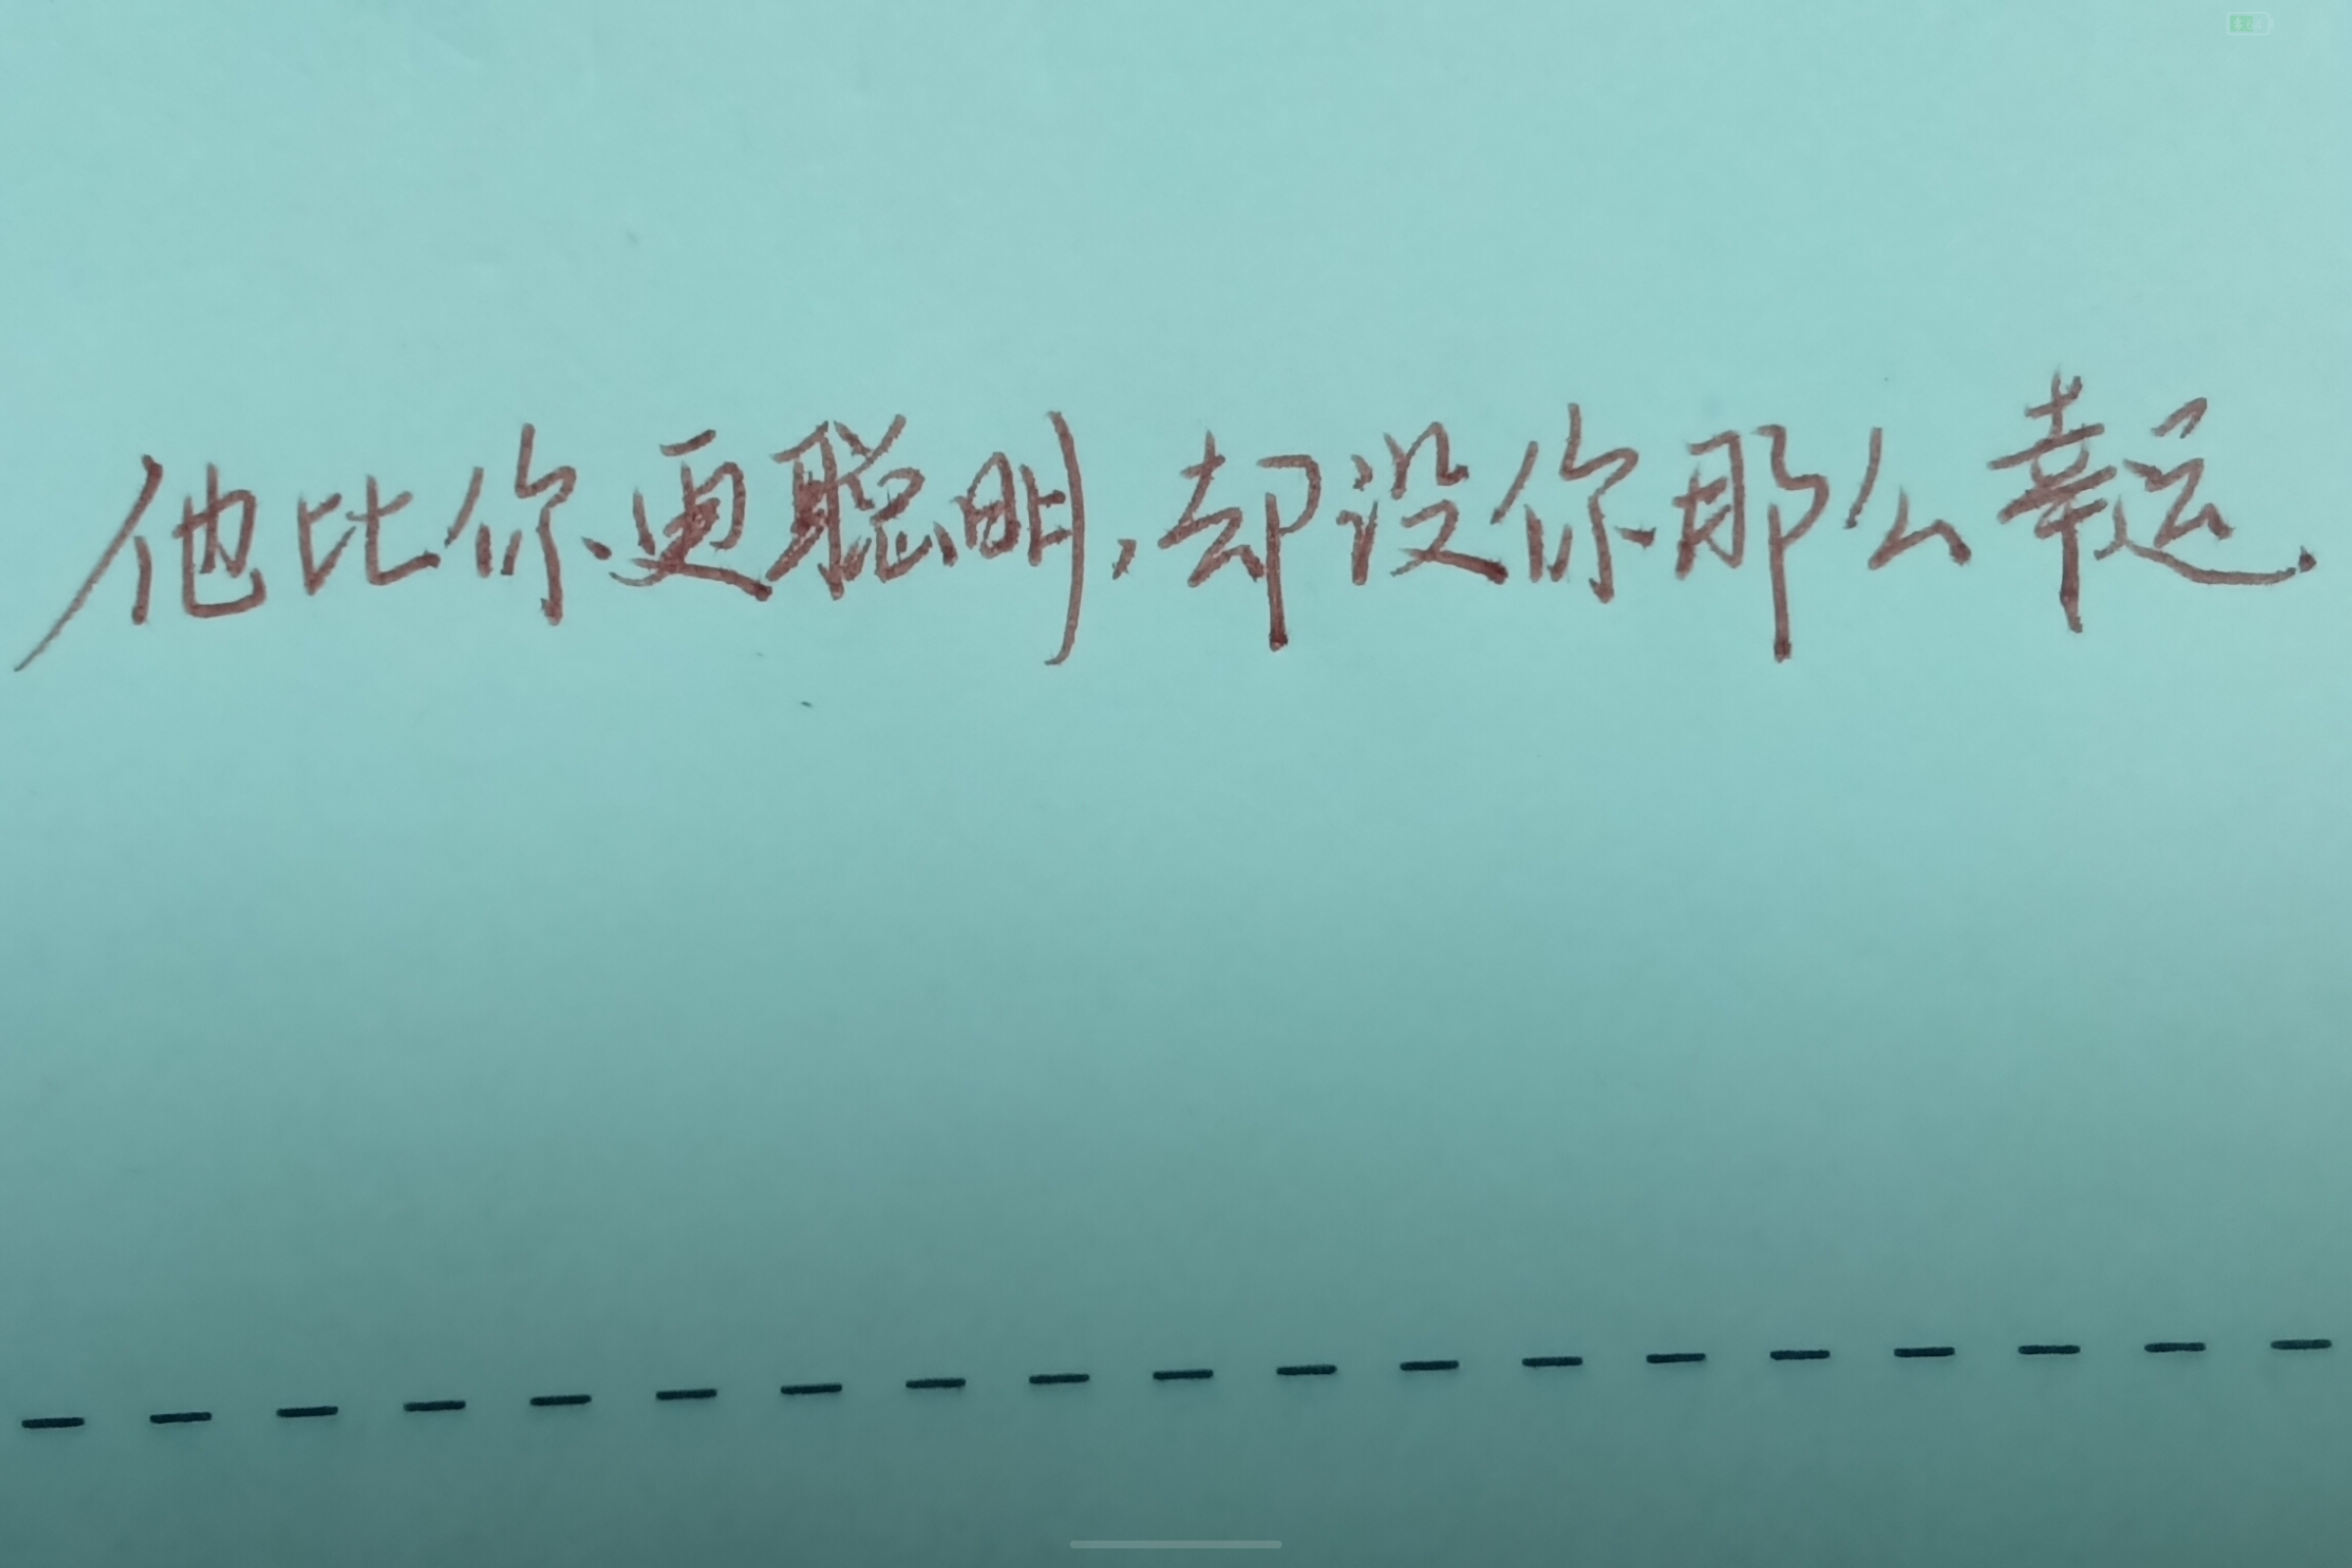 他比你更聪明,却没你那么幸运.